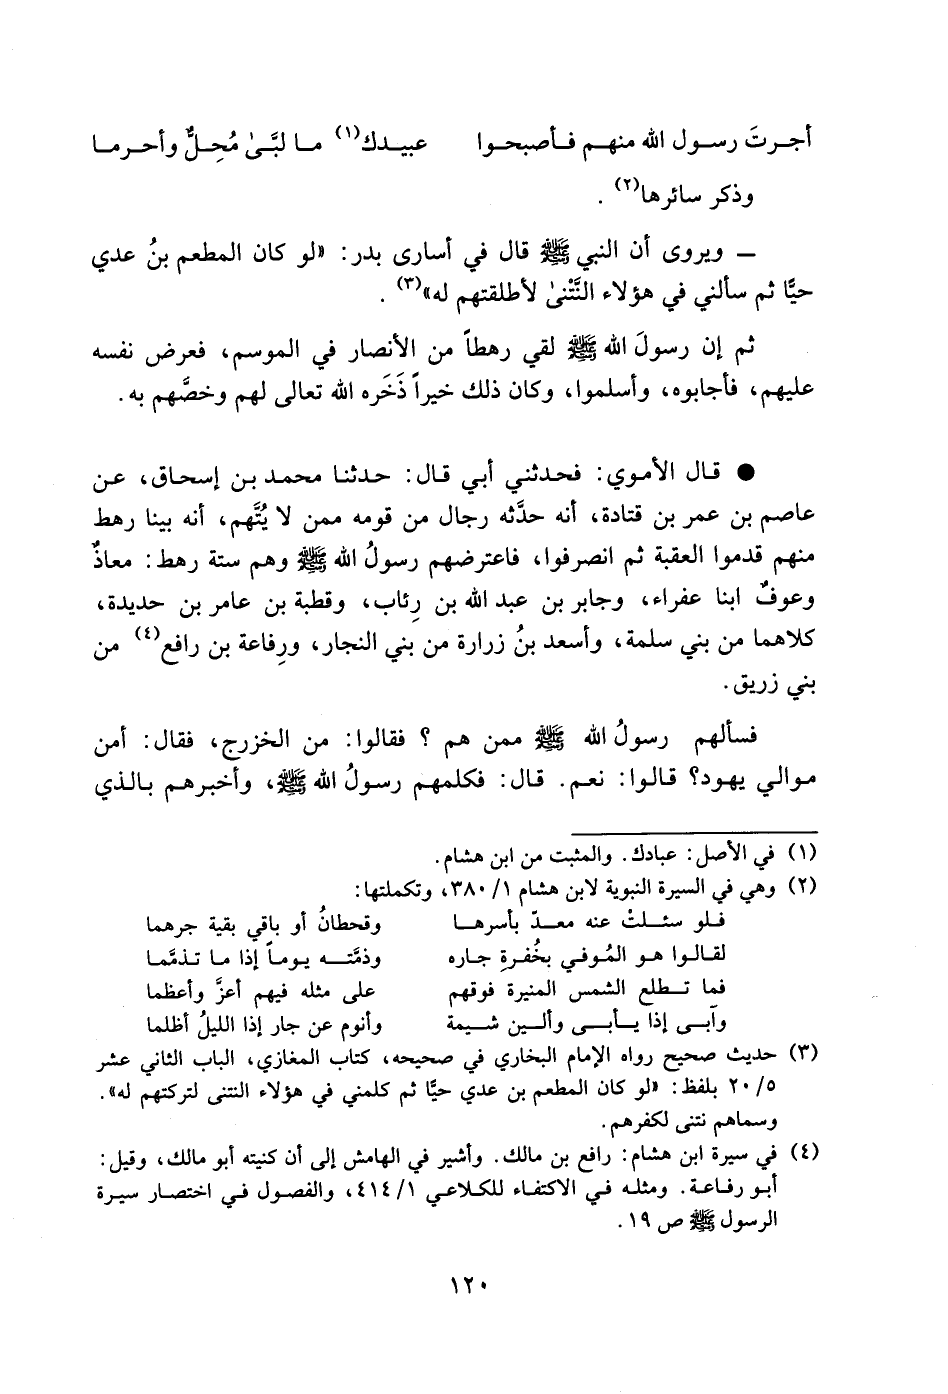 أجرتَ رسول الله منهم فأصبحوا عبيدك(١) ما لبَّىٰ مُحِلٌّ وأحرما
وذكر سائرها(٢) .
ــ ويروى أن النبي ﷺ قال في أسارى بدر: «لو كان المطعم بنُ عدي
حيًّا ثم سألني في هؤلاء النَّتْنىٰ لأطلقتهم له»(٣) .
ثم إن رسولَ الله ﷺ لقي رهطاً من الأنصار في الموسم، فعرض نفسه
عليهم، فأجابوه، وأسلموا، وكان ذلك خيراً ذَخَره الله تعالى لهم وخصَّهم به.
● قال الأموي: فحدثني أبي قال: حدثنا محمد بن إسحاق، عن
عاصم بن عمر بن قتادة، أنه حدَّثه رجال من قومه ممن لا يُتَّهم، أنه بينا رهط
منهم قدموا العقبة ثم انصرفوا، فاعترضهم رسولُ الله ﷺ وهم ستة رهط: معاذٌ
وعوفٌ ابنا عفراء، وجابر بن عبد الله بن رِئاب، وقطبة بن عامر بن حديدة،
كلاهما من بني سلمة، وأسعد بنُ زرارة من بني النجار، ورِفاعة بن رافع(٤) من
بني زريق.
فسألهم رسولُ الله ﷺ ممن هم ؟ فقالوا: من الخزرج، فقال: أمن
موالي يهود؟ قالوا: نعم. قال: فكلمهم رسولُ الله ﷺ، وأخبرهم بالذي
(١) في الأصل: عبادك. والمثبت من ابن هشام.
(٢) وهي في السيرة النبوية لابن هشام ١/ ٣٨٠، وتكملتها:
فلو سئلتْ عنه معدّ بأسرها وقحطانُ أو باقي بقية جرهما
لقالوا هو المُوفي بخُفرةِ جاره وذمَّته يوماً إذا ما تذمَّما
فما تطلع الشمس المنيرة فوقهم على مثله فيهم أعزَّ وأعظما
وآبى إذا يأبى وألين شيمة وأنوم عن جار إذا الليلُ أظلما
(٣) حديث صحيح رواه الإمام البخاري في صحيحه، كتاب المغازي، الباب الثاني عشر
٥/ ٢٠ بلفظ: «لو كان المطعم بن عدي حيًّا ثم كلمني في هؤلاء النتنى لتركتهم له».
وسماهم نتنى لكفرهم.
(٤) في سيرة ابن هشام: رافع بن مالك. وأشير في الهامش إلى أن كنيته أبو مالك، وقيل:
أبو رفاعة. ومثله في الاكتفاء للكلاعي ١/ ٤١٤، والفصول في اختصار سيرة
الرسول ﷺ ص ١٩.
١٢٠